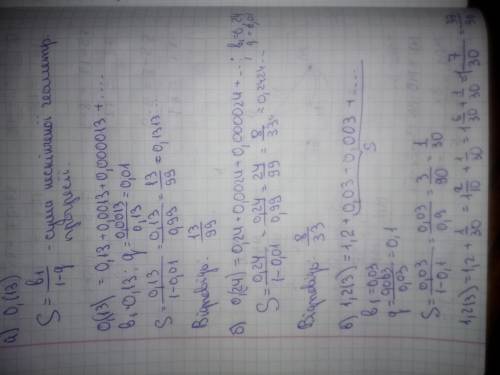 а) 0,(13)
S = b1/1-q - сума нескінченої геометр. прогресії.
0,(13) = 0,13+0,0013+0,000013+....
b1=0,13; q= 0,0013/0,13 =0,01
S= 0,13/1-0,01 = 0,13/0,99 = 13/99 = 0,1313...
Відповідь: 13/99
б) 0,(24) = 0,24+0,0024+0,000024+...; b1=0,24
q=0,01
S= 0,24/1-0,01 = 0,24/0,99 = 24/99 = 8/33 =0,2424...
Відповідь: 8/33
в) 1,2(3) = 1,2+0,03+0,003+....
S
b1=0,03
q= 0,003/0,03 =0,1
S= 0,03/1-0,1 = 0,03/0,9 = 3/90 = 1/30
1,2(3)=1,2+ 1/30 = 1 2/10 + 1/30 = 1 6/30 + 1/30 = 1 7/30 = 37/30